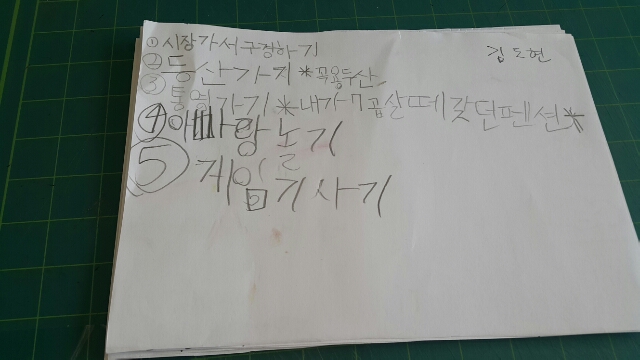 ① 시장가서구경하기
김도헌
② 등산가기 *목용두산
③ 통영가기 *내가7곱살떼갖던펜션*
④ 아빠랑놀기
⑤ 게임기사기